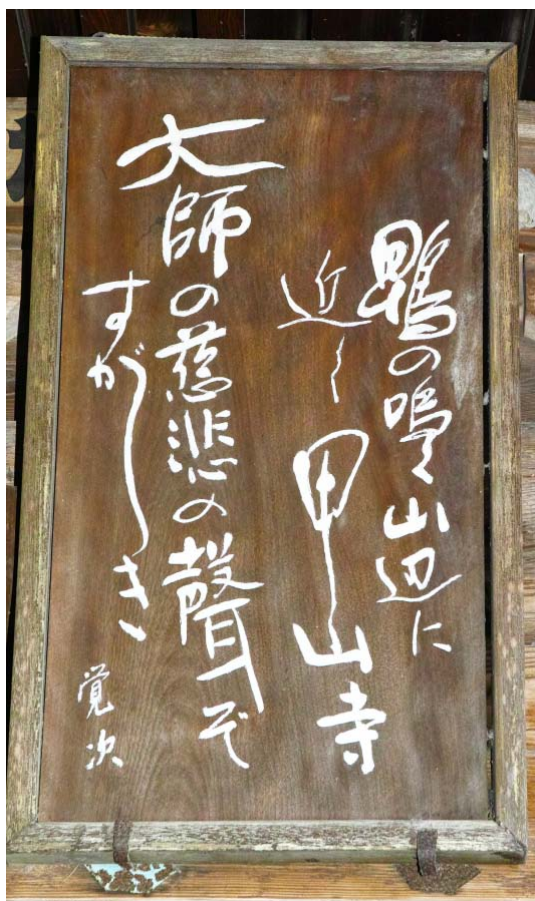 鵙の鳴く山辺に
近く甲山寺
大師の慈悲の聲ぞ
すがしき
覚次